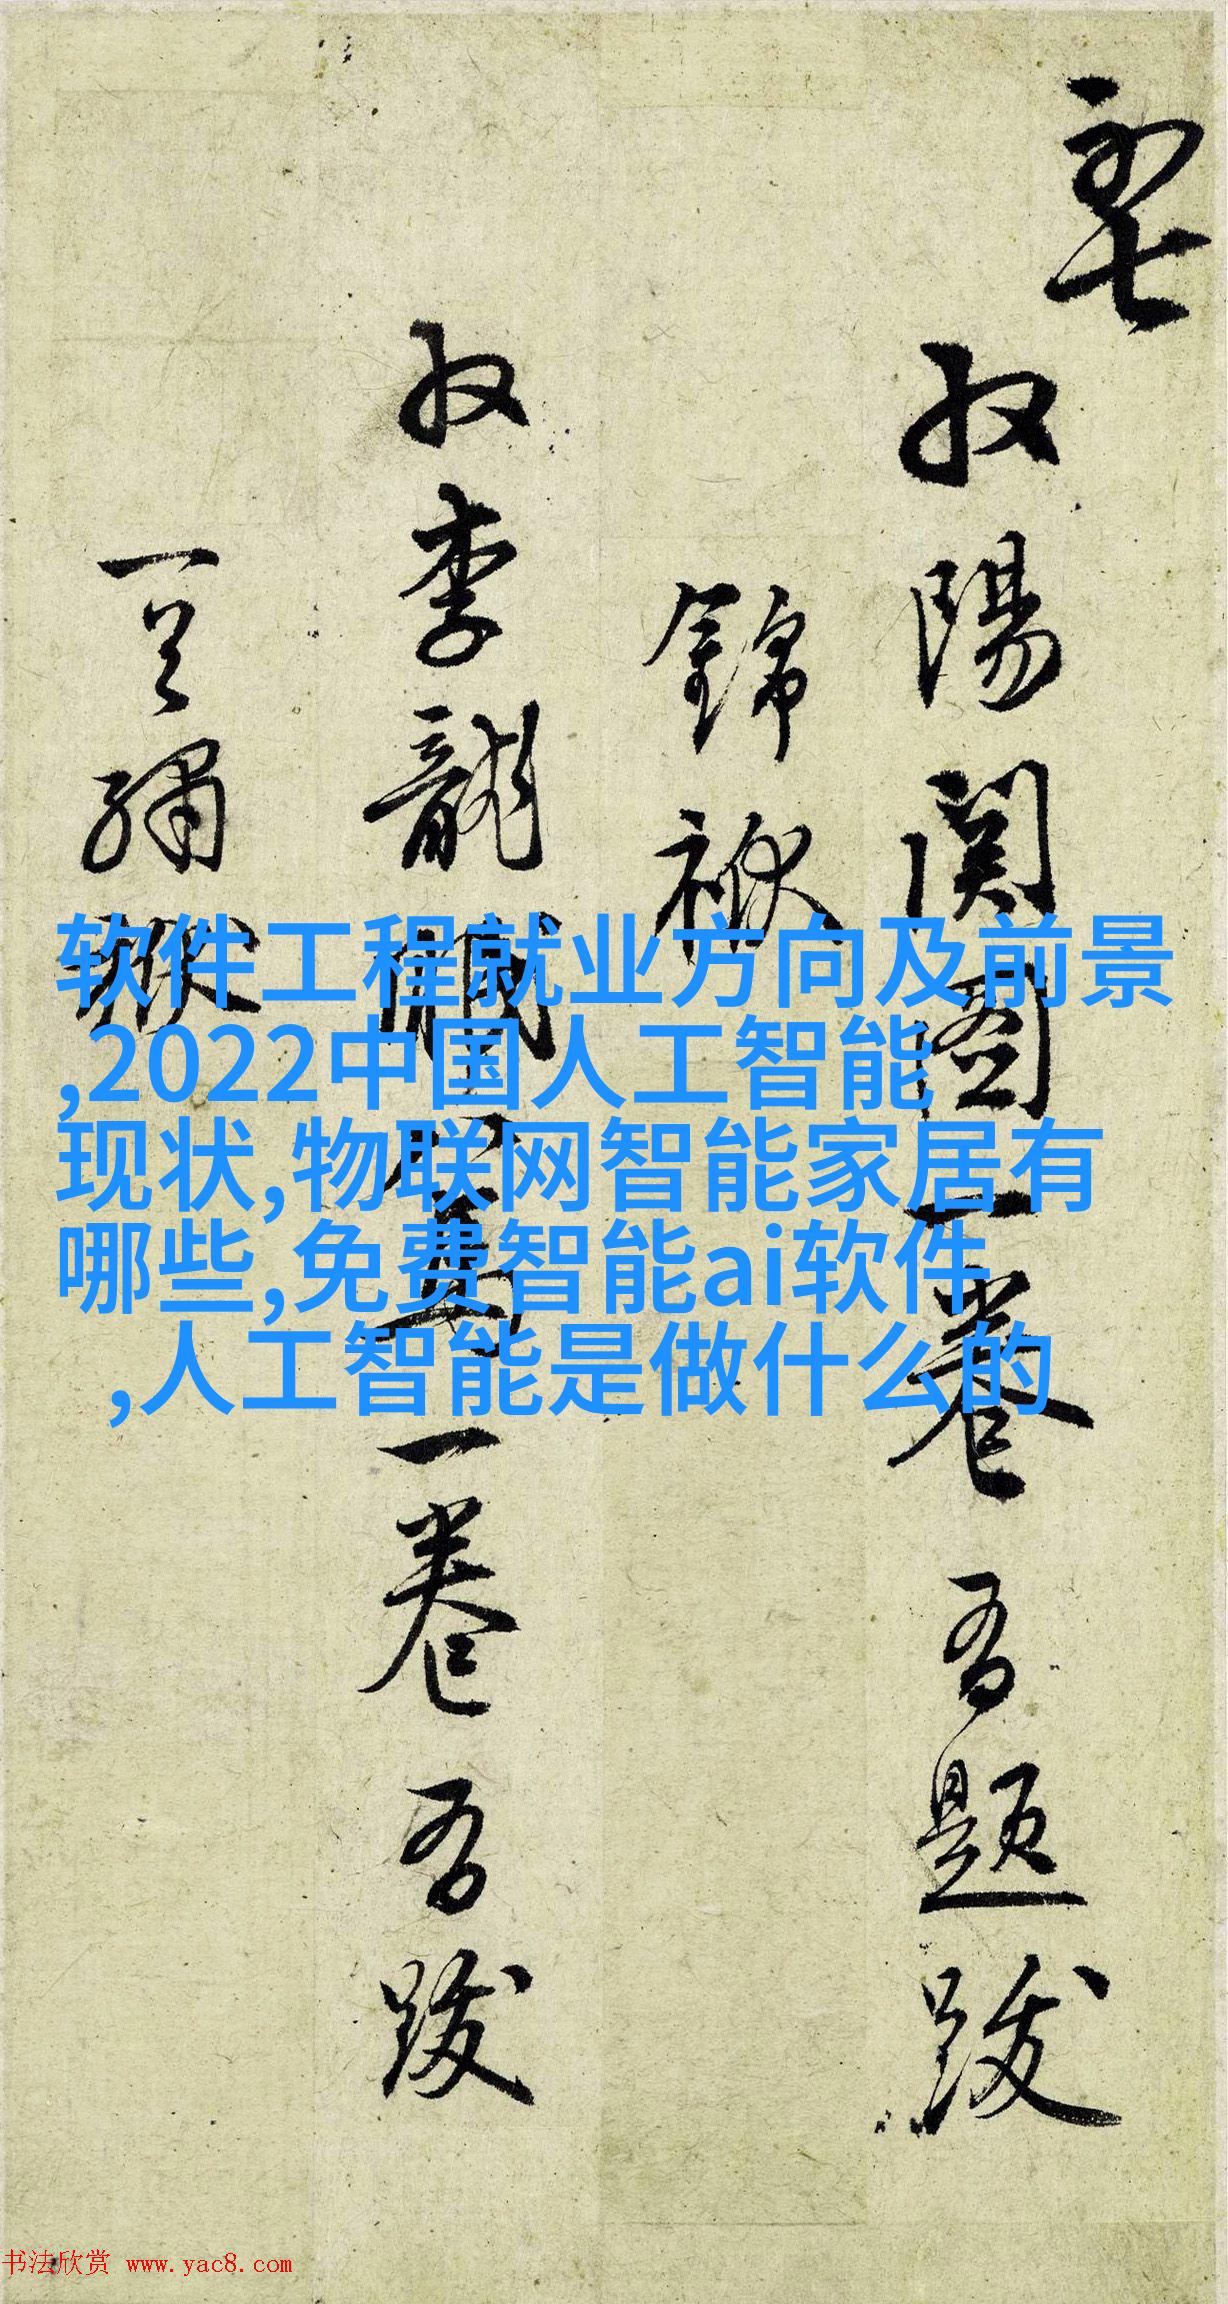 收陽関圖一卷吾題跋
錦袱
收李龍眠一卷吾跋
软件工程就业方向及前景
,2022中国人工智能
现状,物联网智能家居有
哪些,免费智能ai软件
,人工智能是做什么的
书法欣赏 www.yac8.com